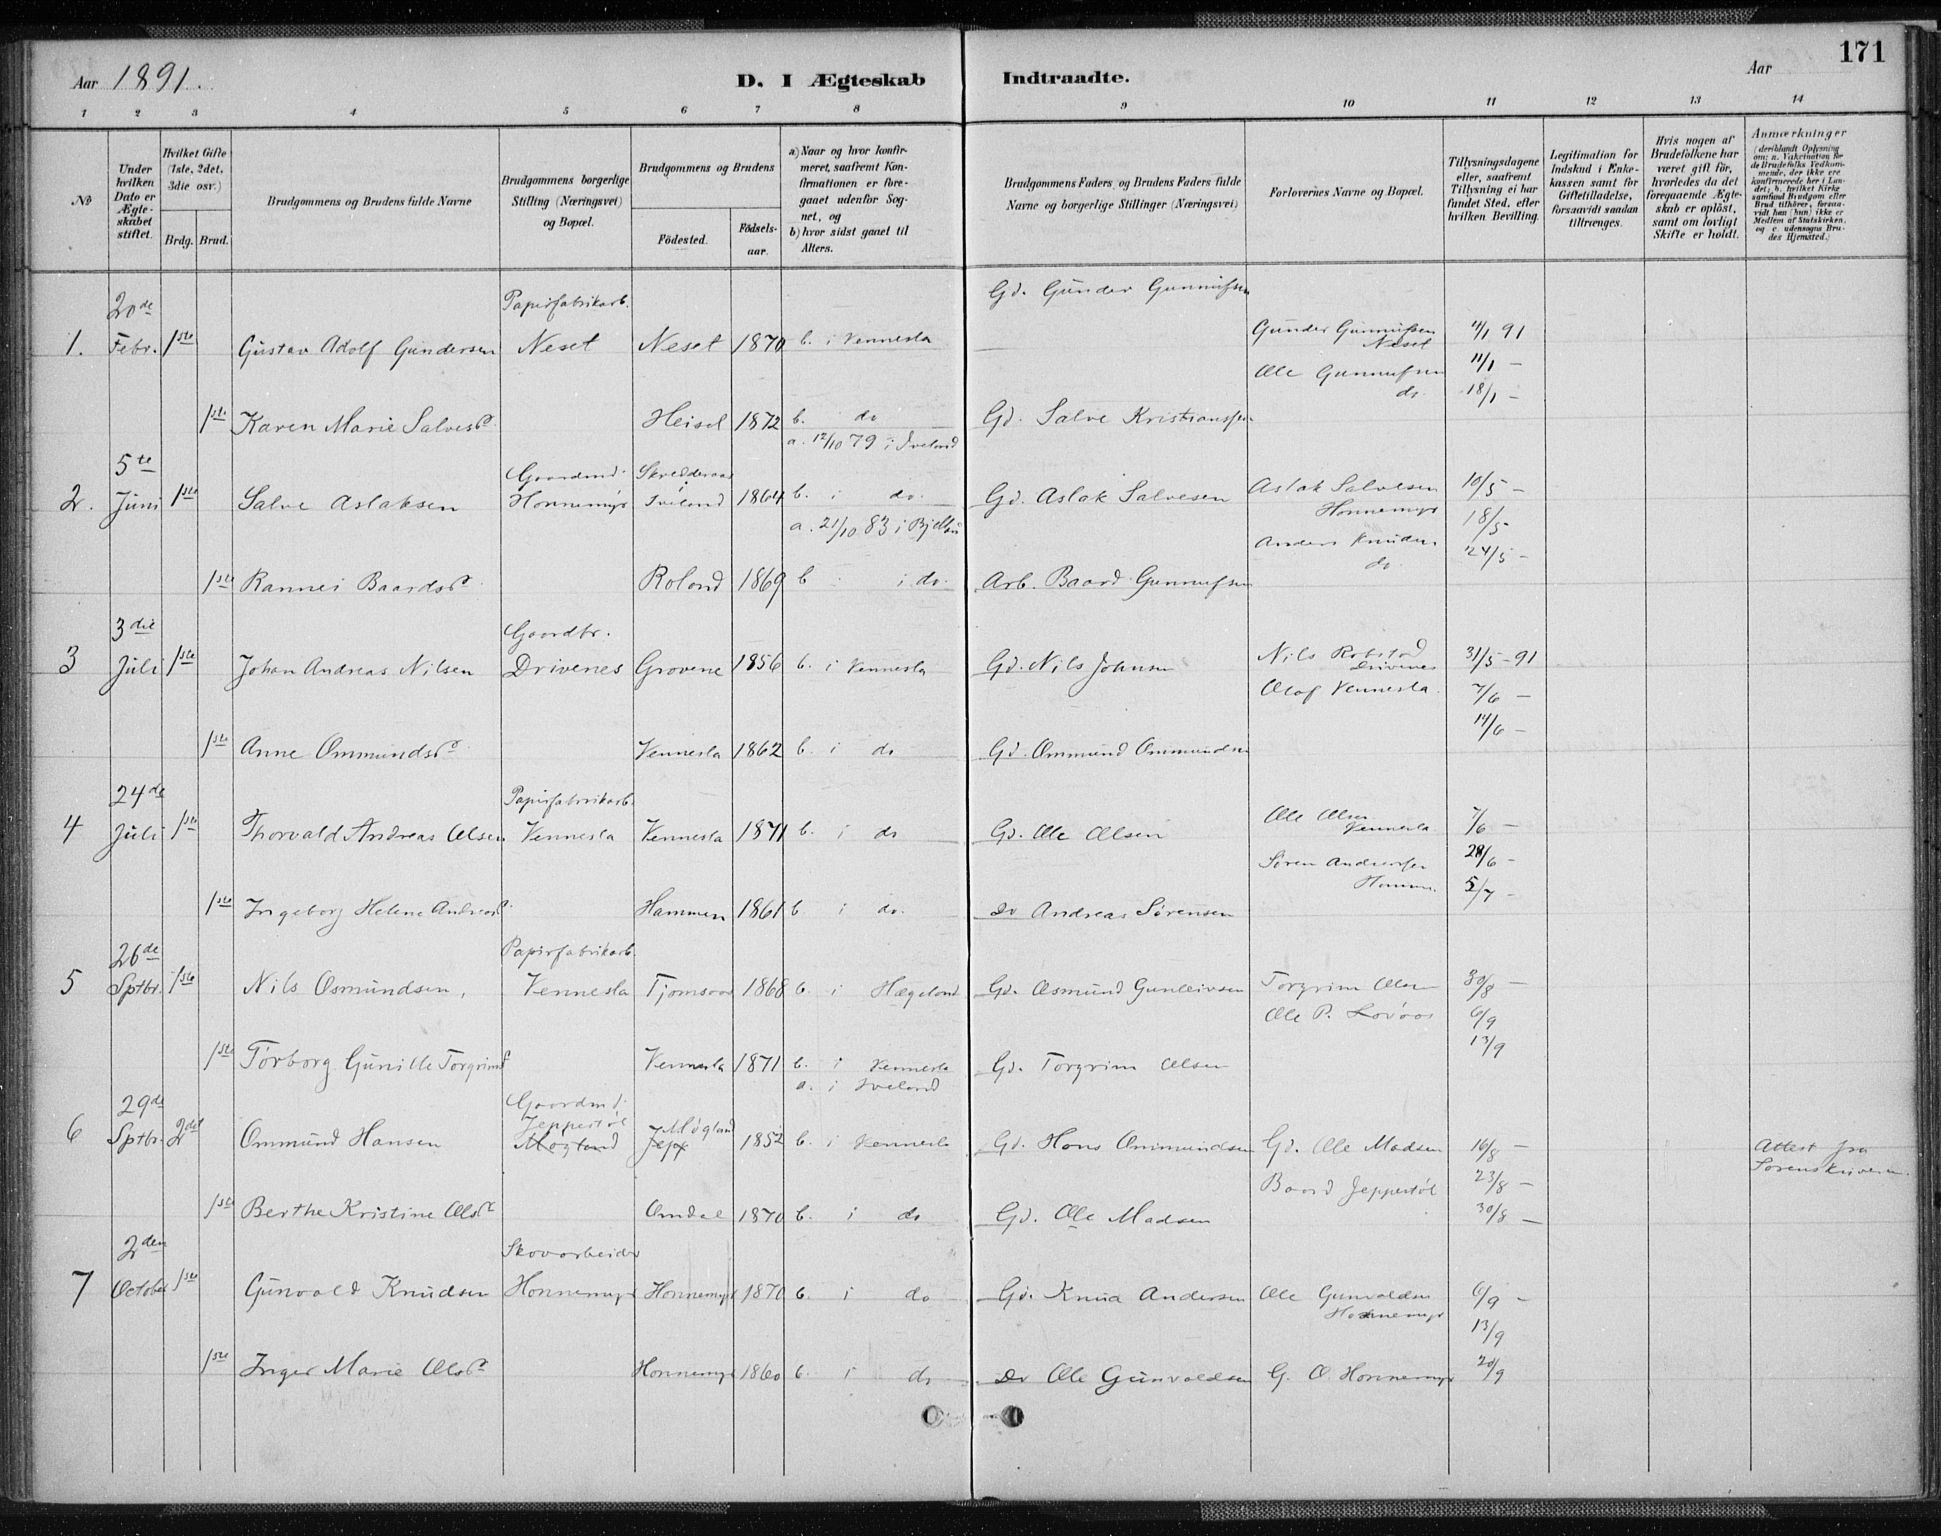 171
Aar 1891.
D. I Ægteskab Indtraadte.
Aar
1 2 3 4 5 6 7 8 9 10 11 12 13 14
No
Under hvilken Dato er Ægteskabet stiftet.
Hvilket Gifte (1ste, 2det, 3die osv.)
Brdg. Brud.
Brudgommens og Brudens fulde Navne
Brudgommens borgerlige Stilling (Næringsvei) og Bopæl.
Brudgommens og Brudens
Födested. Födsels-aar.
a) Naar og hvor konfirmeret, saafremt Konfirmationen er foregaaet udenfor Sognet, og
b) hvor sidst gaaet til Alters.
Brudgommens Faders og Brudens Faders fulde Navne og borgerlige Stillinger (Næringsvei)
Forlovernes Navne og Bopæl.
Tillysningsdagene eller, saafremt Tillysning ei har fundet Sted, efter hvilken Bevilling.
Legitimation for Indskud i Enkekassen samt for Giftetilladelse, forsaavidt saadan tiltrænges.
Hvis nogen af Brudefolkene har været gift för, hvorledes da det foregaaende Ægteskab er oplöst, samt om lovligt Skifte er holdt.
Anmærkninger (deriblandt Oplysning om: a. Vakcination for de Brudefolks Vedkommende, der ikke ere konfirmerede her i Landet; b. hvilket Kirkesamfund Brudgom eller Brud tilhörer, forsaavidt han (hun) ikke er Medlem af Statskirken, og c. udensogns Brudes Hjemsted.)
20de Papirfabrikarb. Gd. Gunder Gunnufsen
1. Febr. 1ste Gustav Adolf Gundersen Neset Neset 1870 b. i Vennesla Gunder Gunnufsen Neset 4/1 91
Ole Gunnufsen do. 11/1 –
18/1 –
1ste Karen Marie Salvesd. Heisel 1872 b. do Gd. Salve Kristiansen
5te Gaardmd. Skredderaas a. 12/10 79 i Iveland
2. Juni 1ste Salve Aslaksen Honnemyr Iveland 1864 b. i do. Gd. Aslak Salvesen Aslak Salvesen Honnemyr 10/5 –
18/5
a. 21/10 83 i Bjelland Anders Knudsen do. 24/5 –
1ste Rannei Baardsd. Roland 1869 b i do. Arb. Baard Gunnufsen
3die Gaardbr.
3 Juli 1ste Johan Andreas Nilsen Drivenes Grovene 1856 b. i Vennesla Gd. Nils Johnsen Nils Robstad Drivenes 31/5 – 91
Olaf Vennesla. 7/6 –
14/6 –
1ste Anne Ommundsd. Vennesla 1862 b. i do Gd. Ommund Ommundsen
24de Papirfabrikarb.
4 Juli 1ste Thorvald Andreas Olsen Vennesla Vennesla 1871 b. i do Gd. Ole Olsen Ole Olsen Vennesla 7/6 –
Søren Andreassen 28/6 –
5/7 –
1ste Ingeborg Helene Andreasd. Hammen 1861 b i do. Do Andreas Sørensen
26de Papirfabrikarb.
5 Sptbr. 1ste Nils Osmundsen, Vennesla Tjomsaas 1868 b. i Hægeland Gd. Osmund Gunleivsen Torgrim Olsen 30/8 –
Ole P. Lovaas 6/9
13/9
1ste Torborg Gunille Torgrimsd. Vennesla 1871 b. i Vennesla Gd. Torgrim Olsen
29de Gaardmd. a. i Iveland
Jeppestøl Møgland
6 Sptbr. 2det Ommund Hansen Mogland Jepp 1852 b. i Vennesla Gd. Hans Ommundsen Gd. Ole Madsen 16/8 – Attest fra Sorenskriveren.
Baard Jeppestøl 23/8 –
30/8 –
1ste Berthe Kristine Olsd. Omdal 1870 b. i do Gd. Ole Madsen
2den Skovarbeider
7 October 1ste Gunvald Knudsen Honnemyr Honnemyr 1870 b. i do Gd. Knud Andersen Ole Gunvaldsen Honnemyr 6/9 –
13/9
1ste Inger Marie Olsd. Honnemyr 1860 b. i do Do Ole Gunvaldsen G. O. Honnemyr 20/9